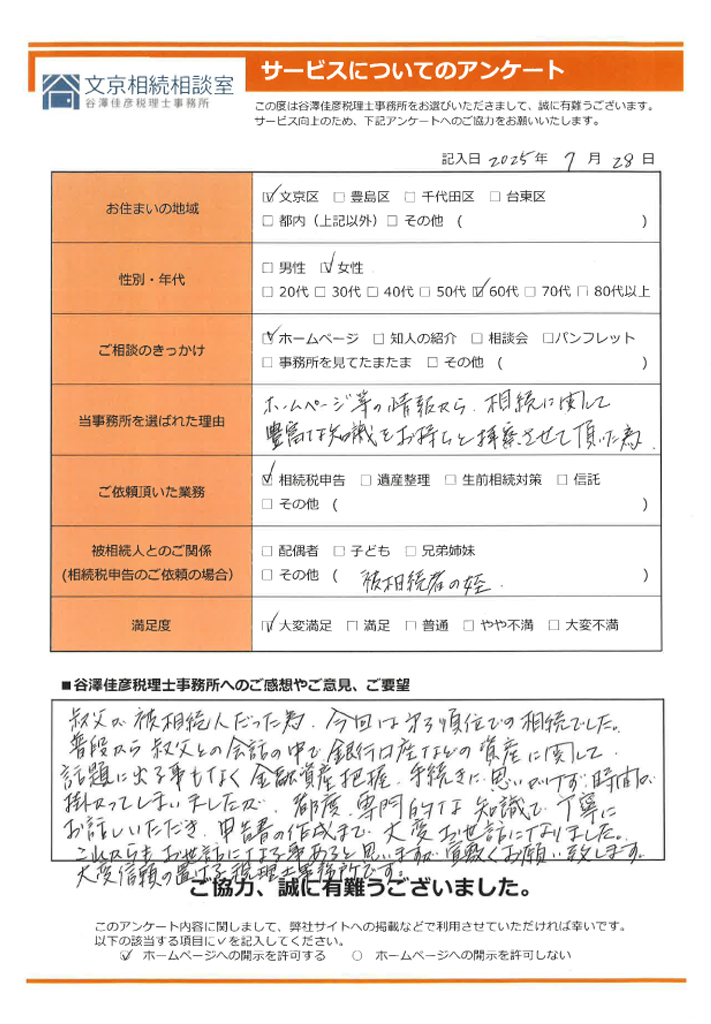 文京相続相談室
谷澤佳彦税理士事務所
サービスについてのアンケート
この度は谷澤佳彦税理士事務所をお選びいただきまして、誠に有難うございます。
サービス向上のため、下記アンケートへのご協力をお願いいたします。
記入日 2025年 7月 28日
お住まいの地域
☑ 文京区 □ 豊島区 □ 千代田区 □ 台東区
□ 都内（上記以外）□ その他 （ ）
性別・年代
□ 男性 ☑ 女性
□ 20代 □ 30代 □ 40代 □ 50代 ☑ 60代 □ 70代 □ 80代以上
ご相談のきっかけ
☑ ホームページ □ 知人の紹介 □ 相談会 □パンフレット
□ 事務所を見てたまたま □ その他 （ ）
当事務所を選ばれた理由
ホームページ等の情報から、相続に関して
豊富な知識をお持ちと拝察させて頂いた為。
ご依頼頂いた業務
☑ 相続税申告 □ 遺産整理 □ 生前相続対策 □ 信託
□ その他 （ ）
被相続人とのご関係
(相続税申告のご依頼の場合)
□ 配偶者 □ 子ども □ 兄弟姉妹
□ その他 （ 被相続者の姪. ）
満足度
☑ 大変満足 □ 満足 □ 普通 □ やや不満 □ 大変不満
■谷澤佳彦税理士事務所へのご感想やご意見、ご要望
叔父が被相続人だった為、今回は第3順位での相続でした。
普段から叔父との会話の中で銀行口座などの資産に関して、
話題に出る事もなく金融資産把握、手続きに思いがけず時間が
掛かってしまいましたが、都度、専門的な知識で丁寧に
お話しいただき、申告書の作成まで大変お世話になりました。
これからもお世話になる事あると思いますが宜敷くお願い致します。
大変信頼の置ける税理士事務所です。
ご協力、誠に有難うございました。
このアンケート内容に関しまして、弊社サイトへの掲載などで利用させていただければ幸いです。
以下の該当する項目に✓を記入してください。
☑ ホームページへの開示を許可する ○ ホームページへの開示を許可しない